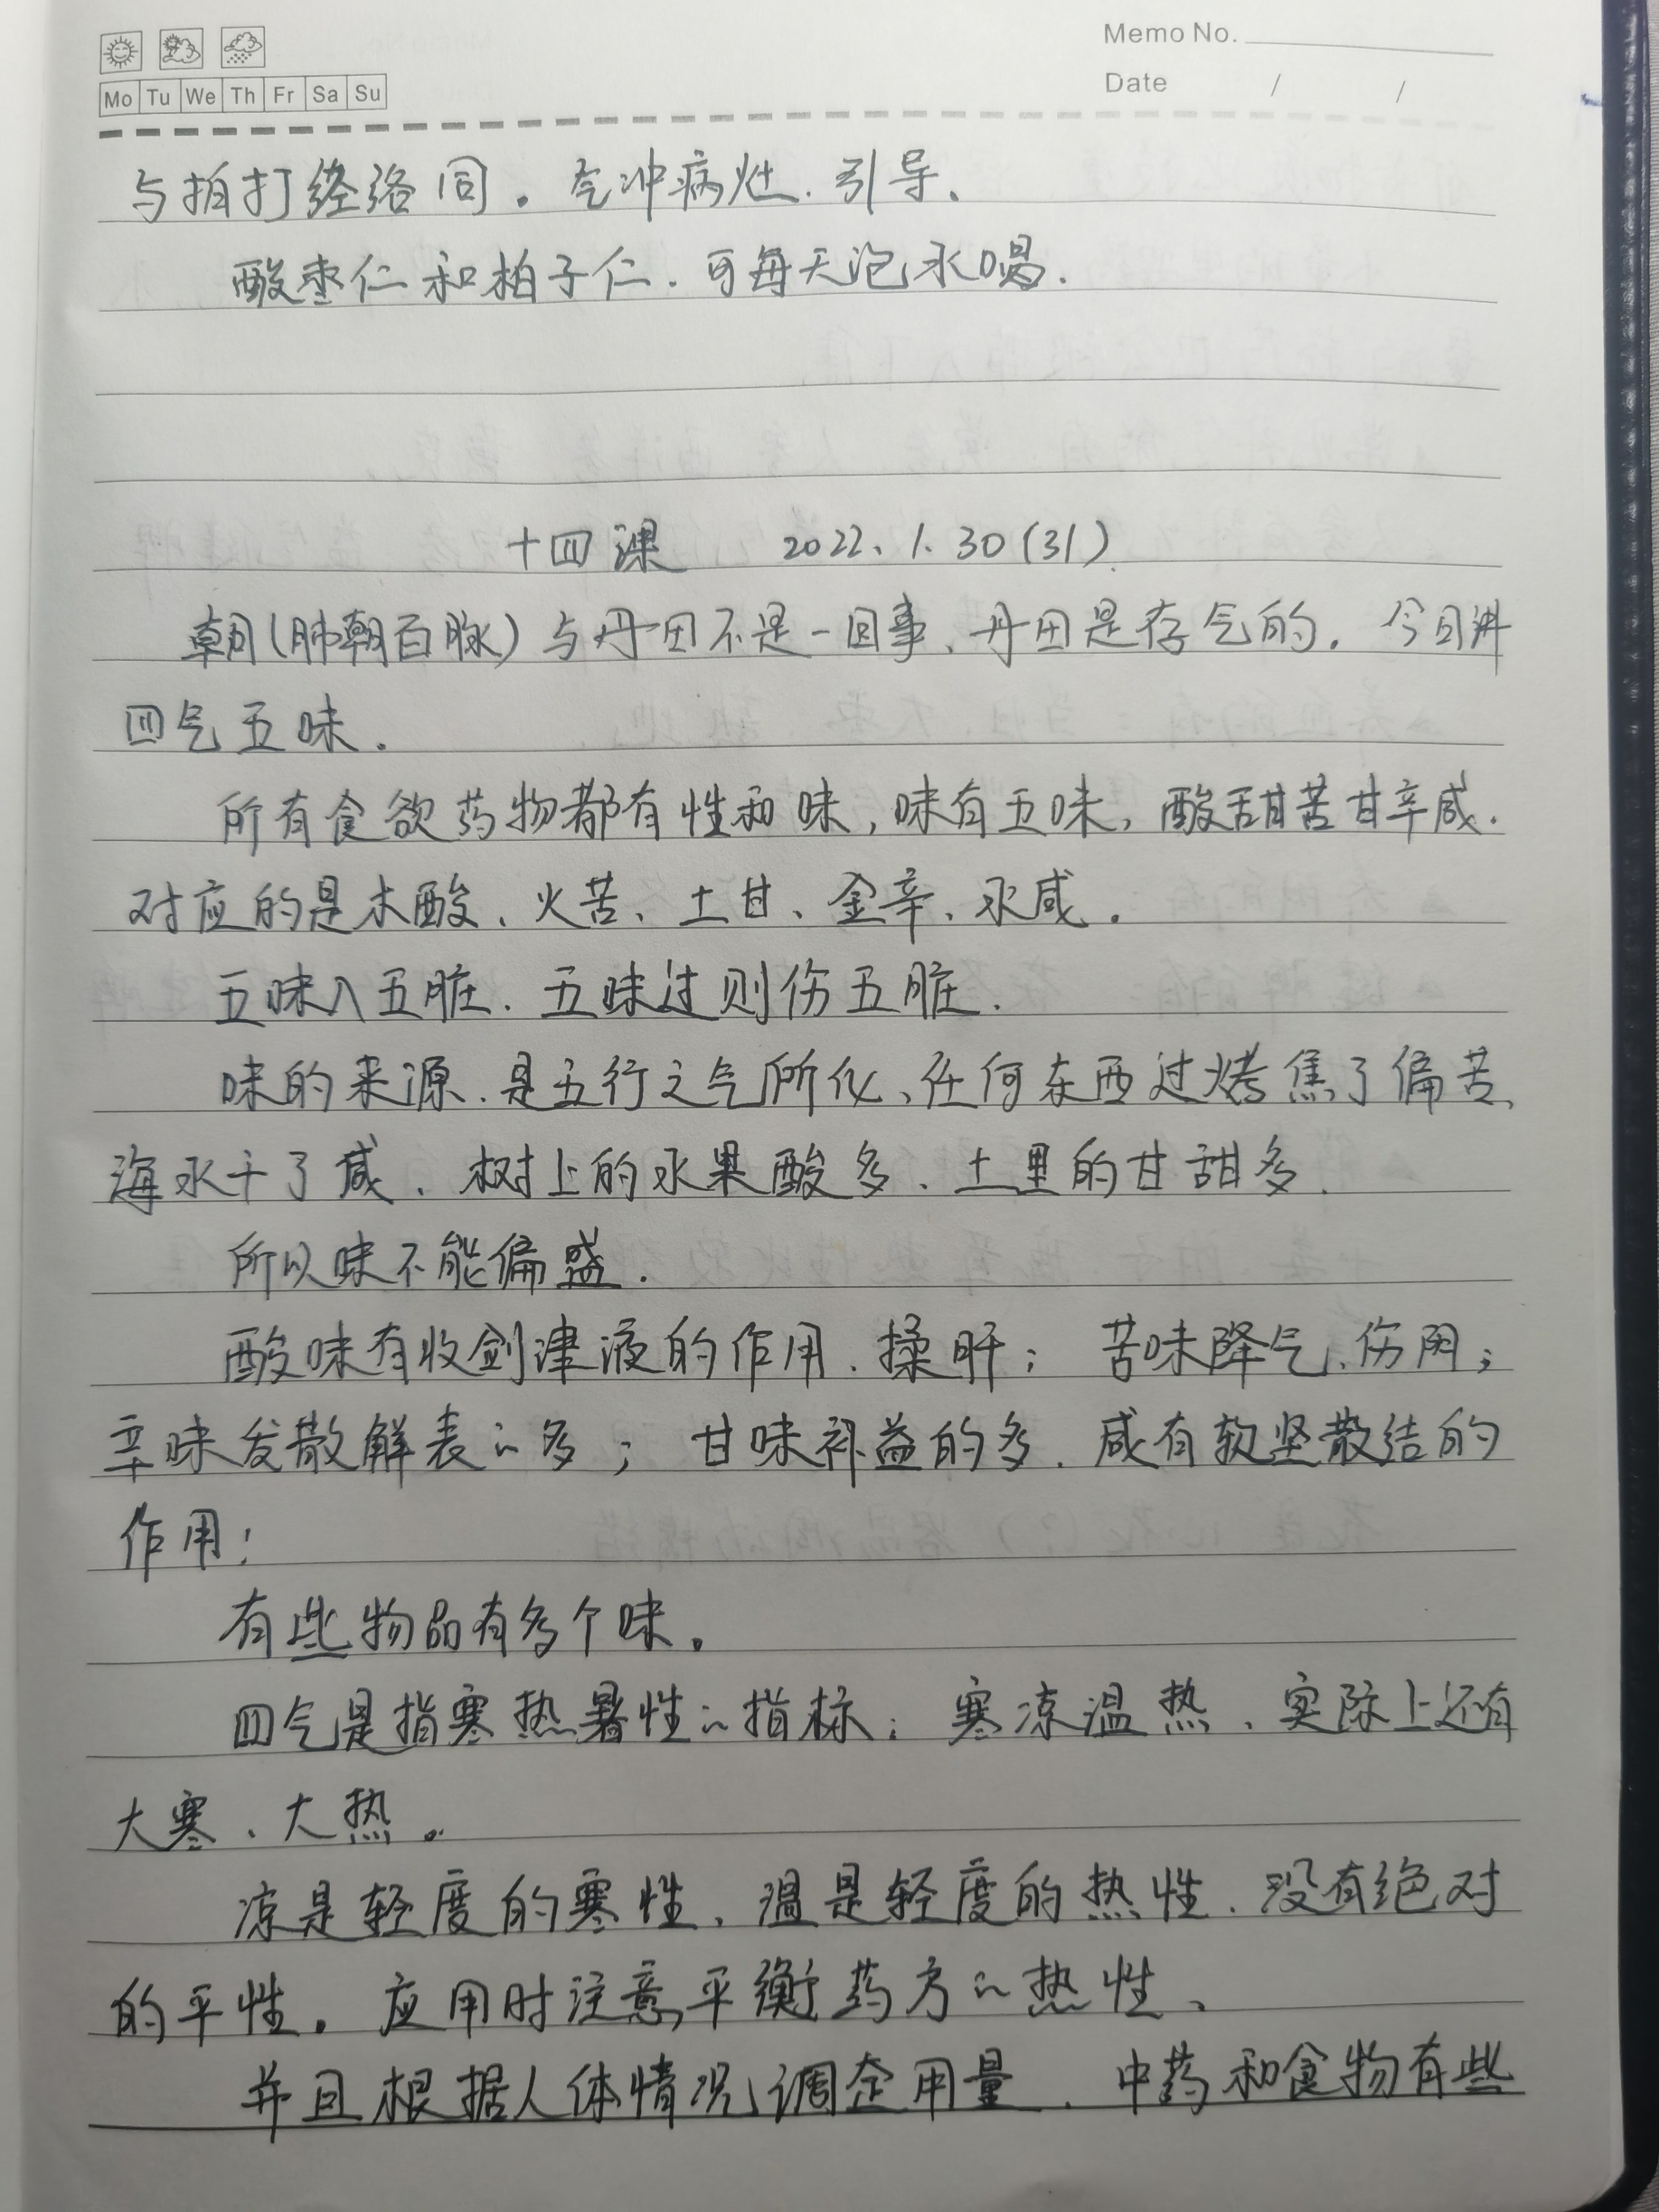 Memo No.
Mo Tu We Th Fr Sa Su
Date / /
与拍打经络同。气冲病灶、引导、
酸枣仁和柏子仁.可每天泡水喝.
十四课 2022、1.30(31)
朝(肺朝百脉)与丹田不是一回事、丹田是存气的. 今日讲
四气五味.
所有食欲药物都有性和味,味有五味,酸甜苦甘辛咸.
对应的是木酸、火苦、土甘、金辛、水咸.
五味入五脏.五味过则伤五脏.
味的来源.是五行之气所化、任何东西过烤焦了偏苦、
海水干了咸.树上的水果酸多、土里的甘甜多.
所以味不能偏盛.
酸味有收剑津液的作用.揉肝; 苦味降气、伤阴;
辛味发散解表的多; 甘味补益的多.咸有软坚散结的
作用;
有些物品有多个味。
四气是指寒热暑性的指标; 寒凉温热、实际上还有
大寒、大热。
凉是轻度的寒性、温是轻度的热性.没有绝对
的平性。应用时注意平衡药方的热性、
并且根据人体情况调定用量.中药和食物有些